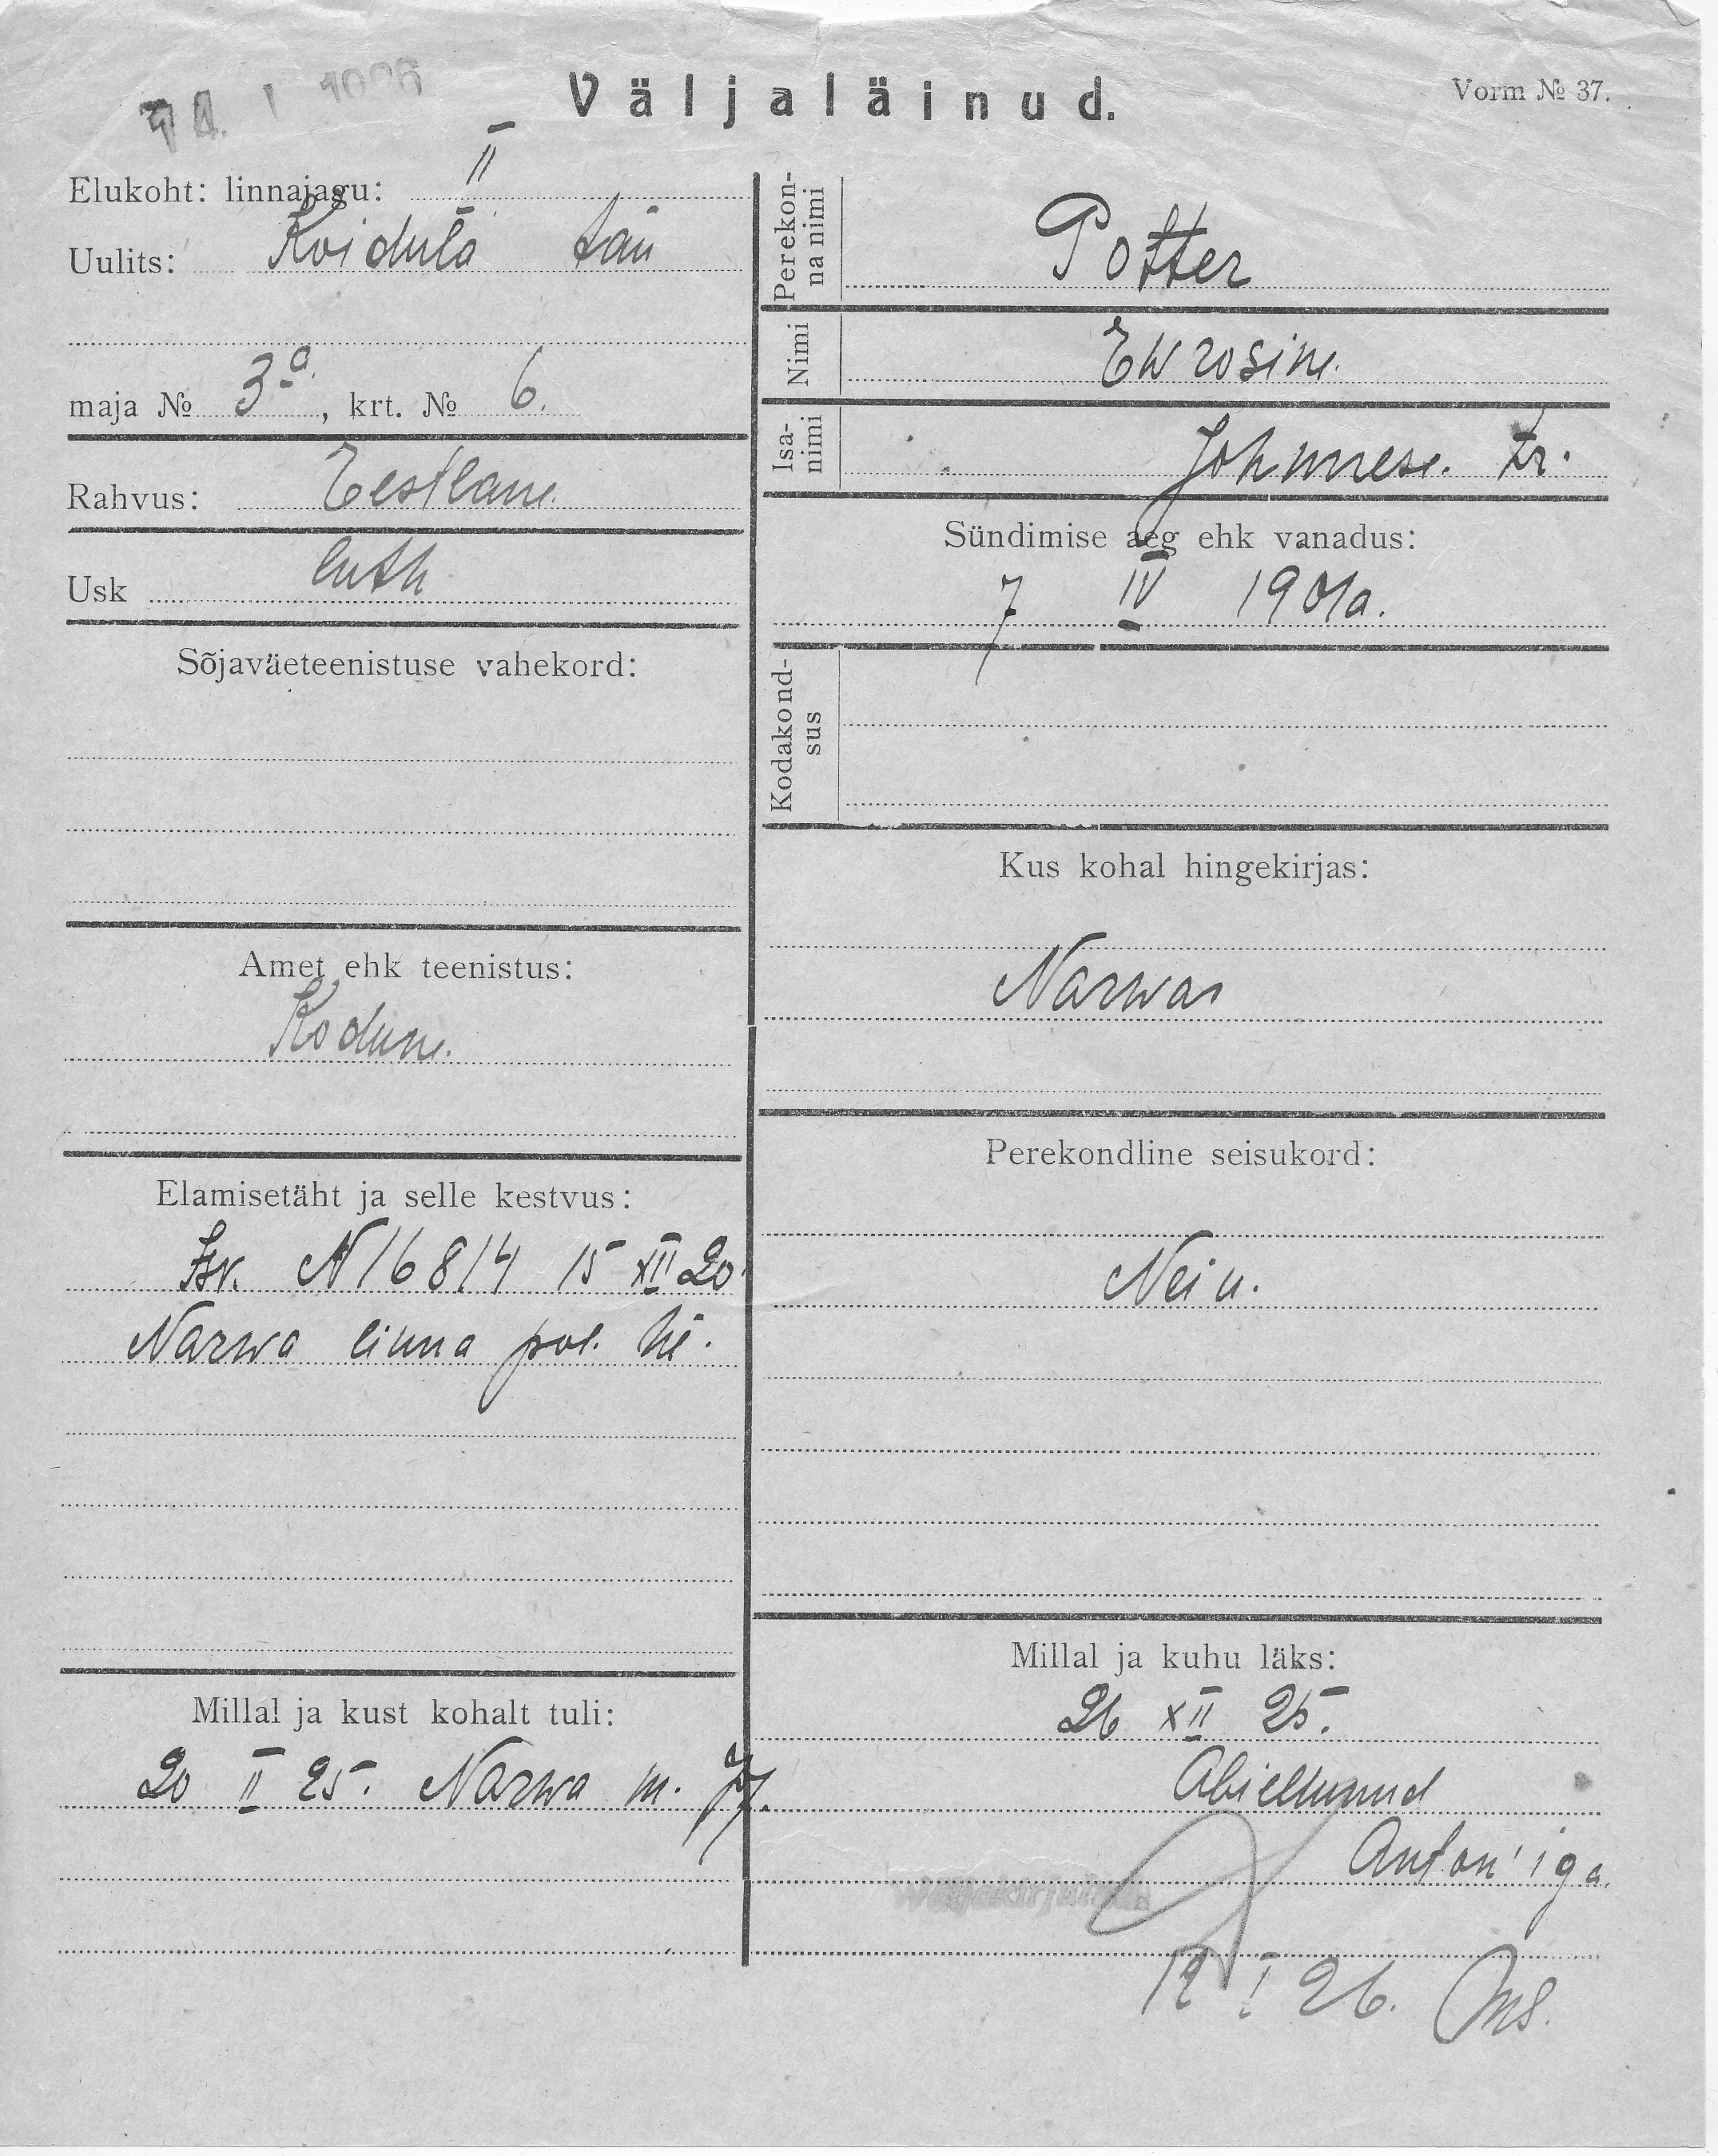 14. I 1926
Väljaläinud.
Vorm № 37.
Elukoht: linnajagu: II
Uulits: Koidula tän
maja № 3a, krt. № 6.
Rahvus: Eestlane.
Usk luth
Sõjaväeteenistuse vahekord:
Amet ehk teenistus:
Kodune.
Elamisetäht ja selle kestvus:
Isv. N 16814 15 XII 20
Narwa linna pol. ül.
Millal ja kust kohalt tuli:
20 II 25. Narwa m. 77.
Perekon-
na nimi
Potter
Nimi
Ewrosine.
Isa-
nimi
Johannese. tr.
Sündimise aeg ehk vanadus:
7 IV 1901a.
Kodakond-
sus
Kus kohal hingekirjas:
Narwas
Perekondline seisukord:
Neiu.
Millal ja kuhu läks:
26 XII 25.
Abiellunud
Anton'iga.
12 I 26.